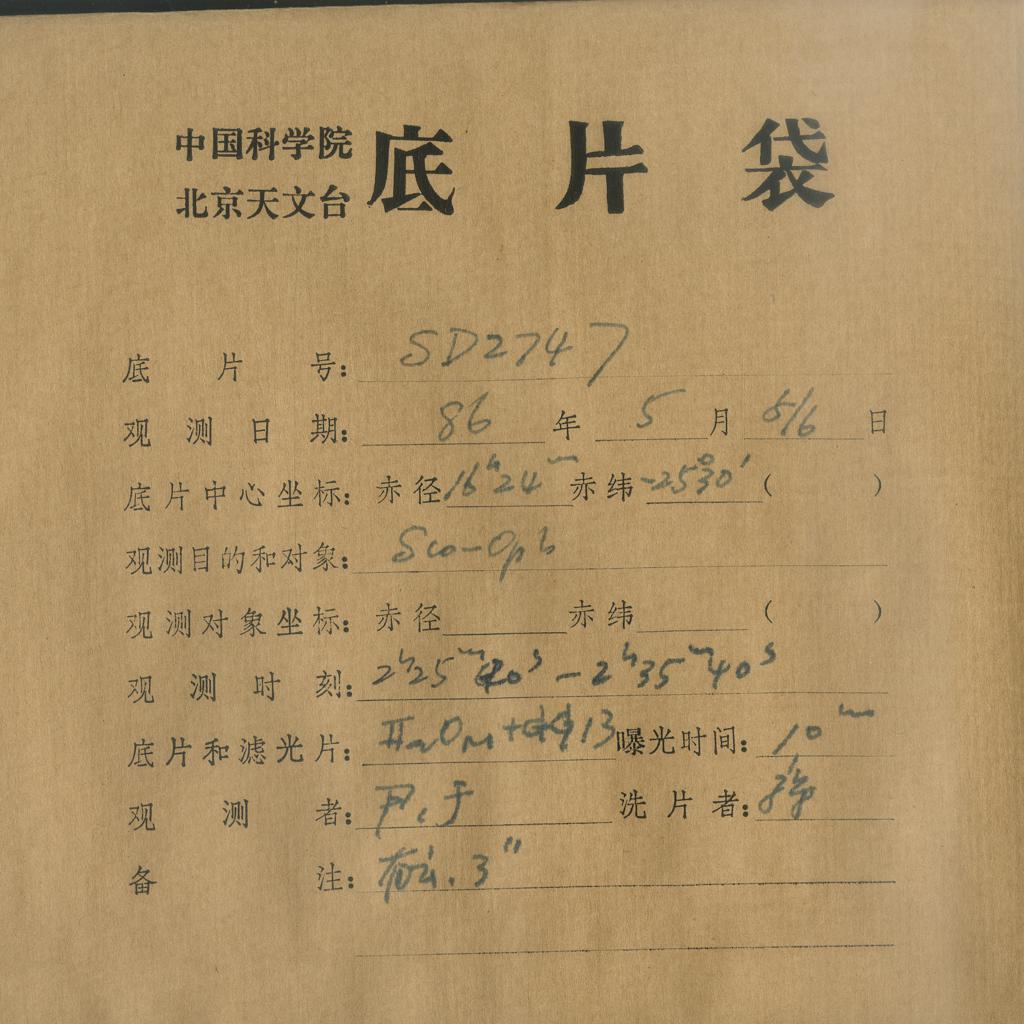 中国科学院
北京天文台
底片袋
底片号：SD2747
观测日期：86年5月5/6日
底片中心坐标：赤径16h24m赤纬-25°30′（ ）
观测目的和对象：Sco-Oph
观测对象坐标：赤径 赤纬 （ ）
观测时刻：2h25m40s-2h35m40s
底片和滤光片：13曝光时间：10m
观测者：尹、于 洗片者：
备注：有云.3″